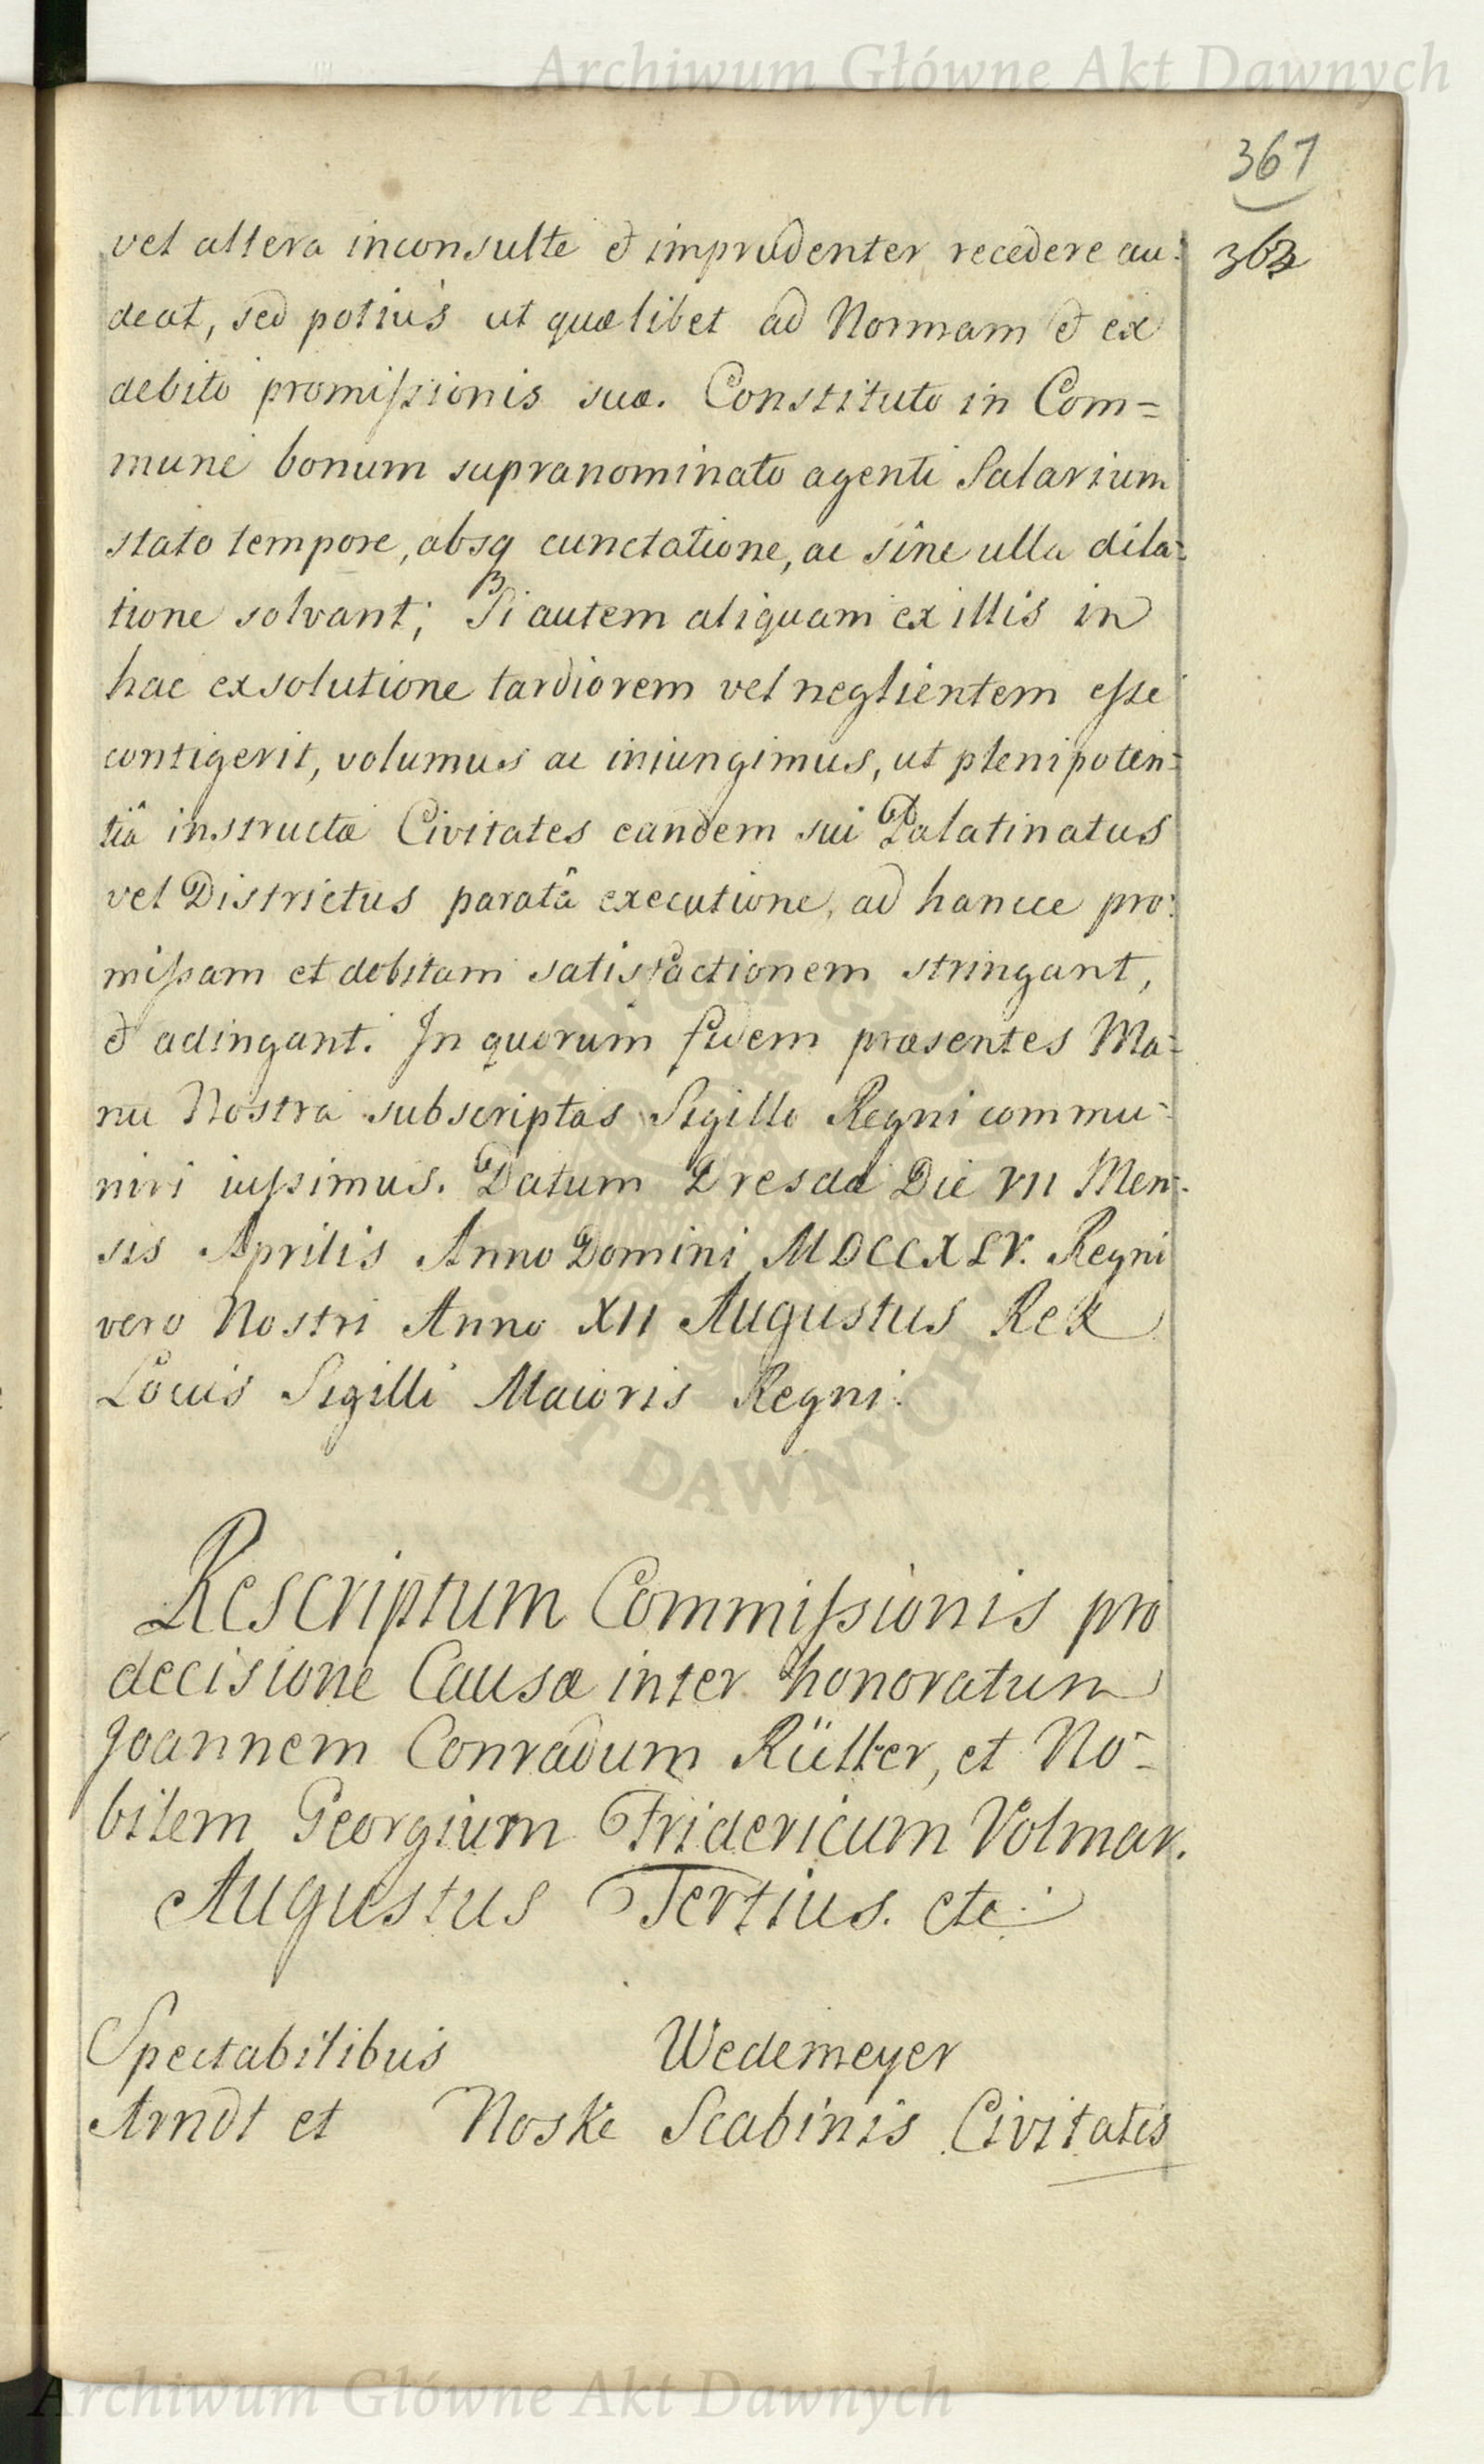 Archiwum Główne Akt Dawnych
367
vel altera inconsulte et imprudenter recedere au- 363
deat, sed potius ut quælibet ad Normam et ex
debito promissionis suæ. Constituto in Com=
mune bonum supranominato agenti Salarium
stato tempore, absq cunctatione, ac sine ulla dila-
tione solvant; Si autem aliquam ex illis in
hac exsolutione tardiorem vel neglientem esse
contigerit, volumus ac iniungimus, ut plenipoten-
tiâ instructæ Civitates eandem sui Palatinatus
vel Districtus paratâ executione, ad hancce pro-
missam et debitam satisfactionem stringant,
et adingant. In quorum fidem præsentes Ma-
nu Nostra subscriptas Sigillo Regni commu-
niri iussimus. Datum Dresdæ Die VII Men-
sis Aprilis Anno Domini MDCCXLV. Regni
vero Nostri Anno XII Augustus Rex
Locus Sigilli Maioris Regni.
Rescriptum Commissionis pro
decisione Causæ inter honoratum
Joannem Conradum Rütter, et No-
bilem Georgium Fridericum Volmar.
Augustus Tertius. etc.
Spectabilibus Wedemeyer
Arndt et Noske Scabinis Civitatis
Archiwum Główne Akt Dawnych